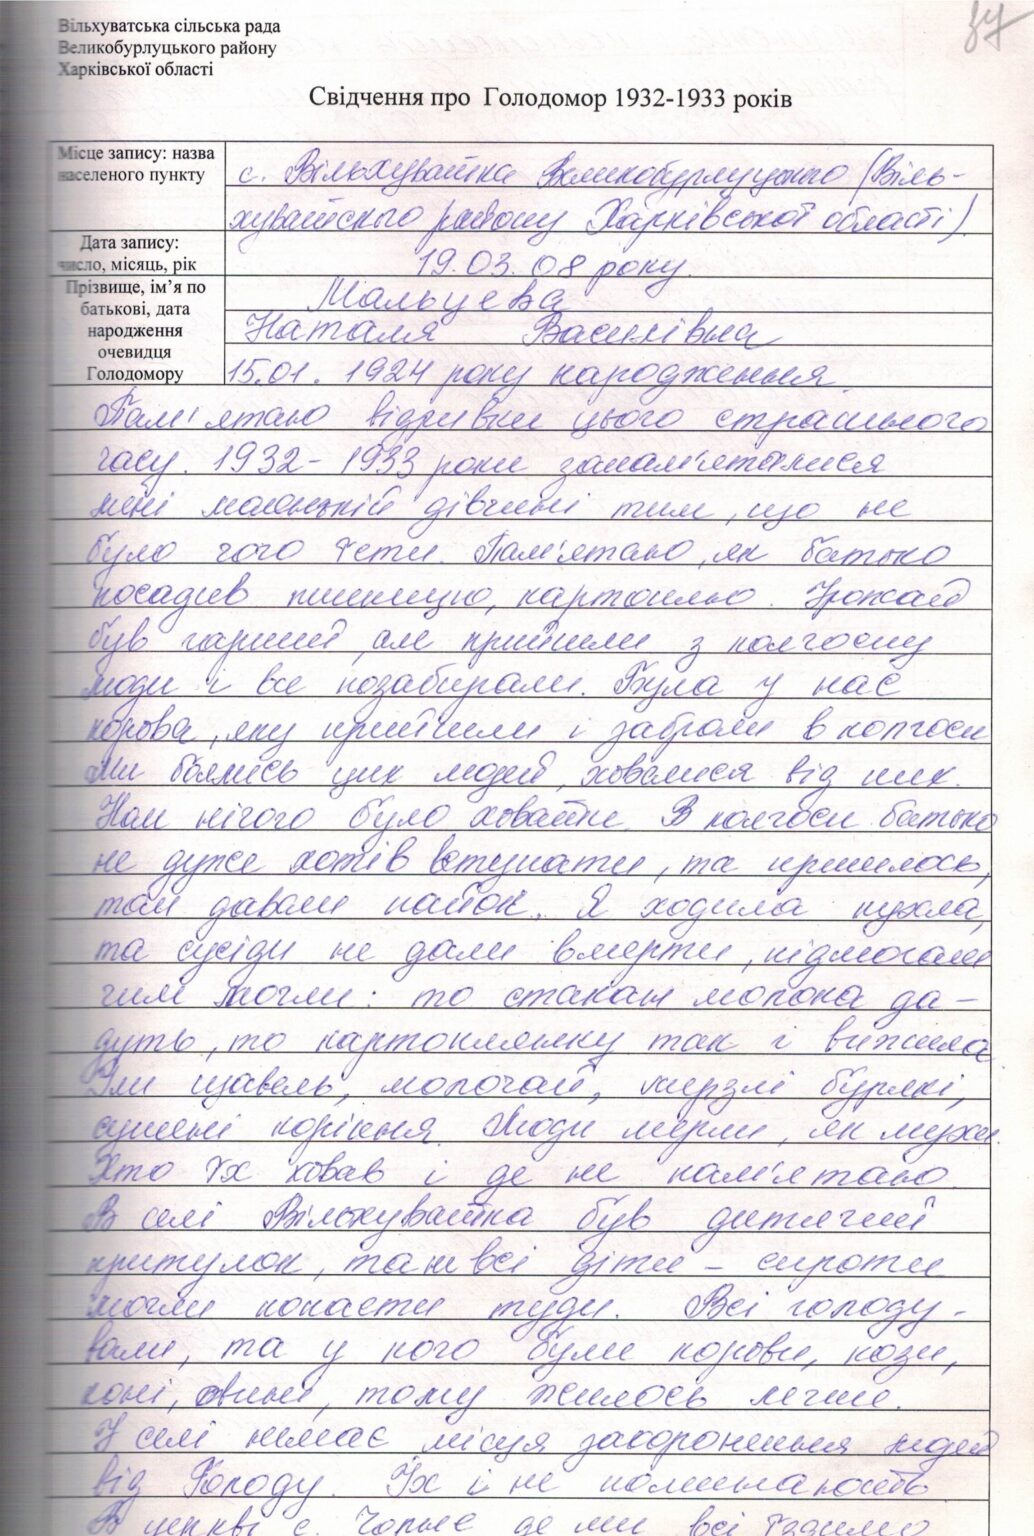 Вільхуватська сільська рада
Великобурлуцького району
Харківської області
Свідчення про Голодомор 1932-1933 років
Місце запису: назва населеного пункту
с. Вільхуватка Великобурлуцького (Віль-
хуватського району Харківської області)
Дата запису: число, місяць, рік
19.03.08 року.
Прізвище, ім’я по батькові, дата народження очевидця Голодомору
Мальцева
Наталя Василівна
15.01.1924 року народження.
Пам'ятаю відривки цього страшного
часу. 1932-1933 роки запам'яталися
мені маленькій дівчині тим, що не
було чого їсти. Пам'ятаю, як батько
посадив пшеницю, картоплю. Урожай
був гарний, але прийшли з колгоспу
люди і все позабирали. Була у нас
корова, яку прийшли і забрали в колгосп
Ми боялись цих людей, ховалися від них.
Нам нічого було ховати. В колгосп батько
не дуже хотів вступати, та прийшлось,
там давали пайок. Я ходила пухла,
та сусіди не дали вмерти, підмогали
чим могли: то стакан молока да-
дуть, то картоплинку так і вижила
Їли щавель, молочай, мерзлі буряки,
сушені коріння. Люди мерли, як мухи.
Хто їх ховав і де не пам'ятаю.
В селі Вільхуватка був дитячий
притулок, та не всі діти - сироти
могли попасти туди. Всі голоду-
вали, та у кого були корови, кози,
коні, свині, тому жилось легше.
У селі немає місця захоронення людей
від Голоду. Їх і не поминають
В церкві с. де ми всі